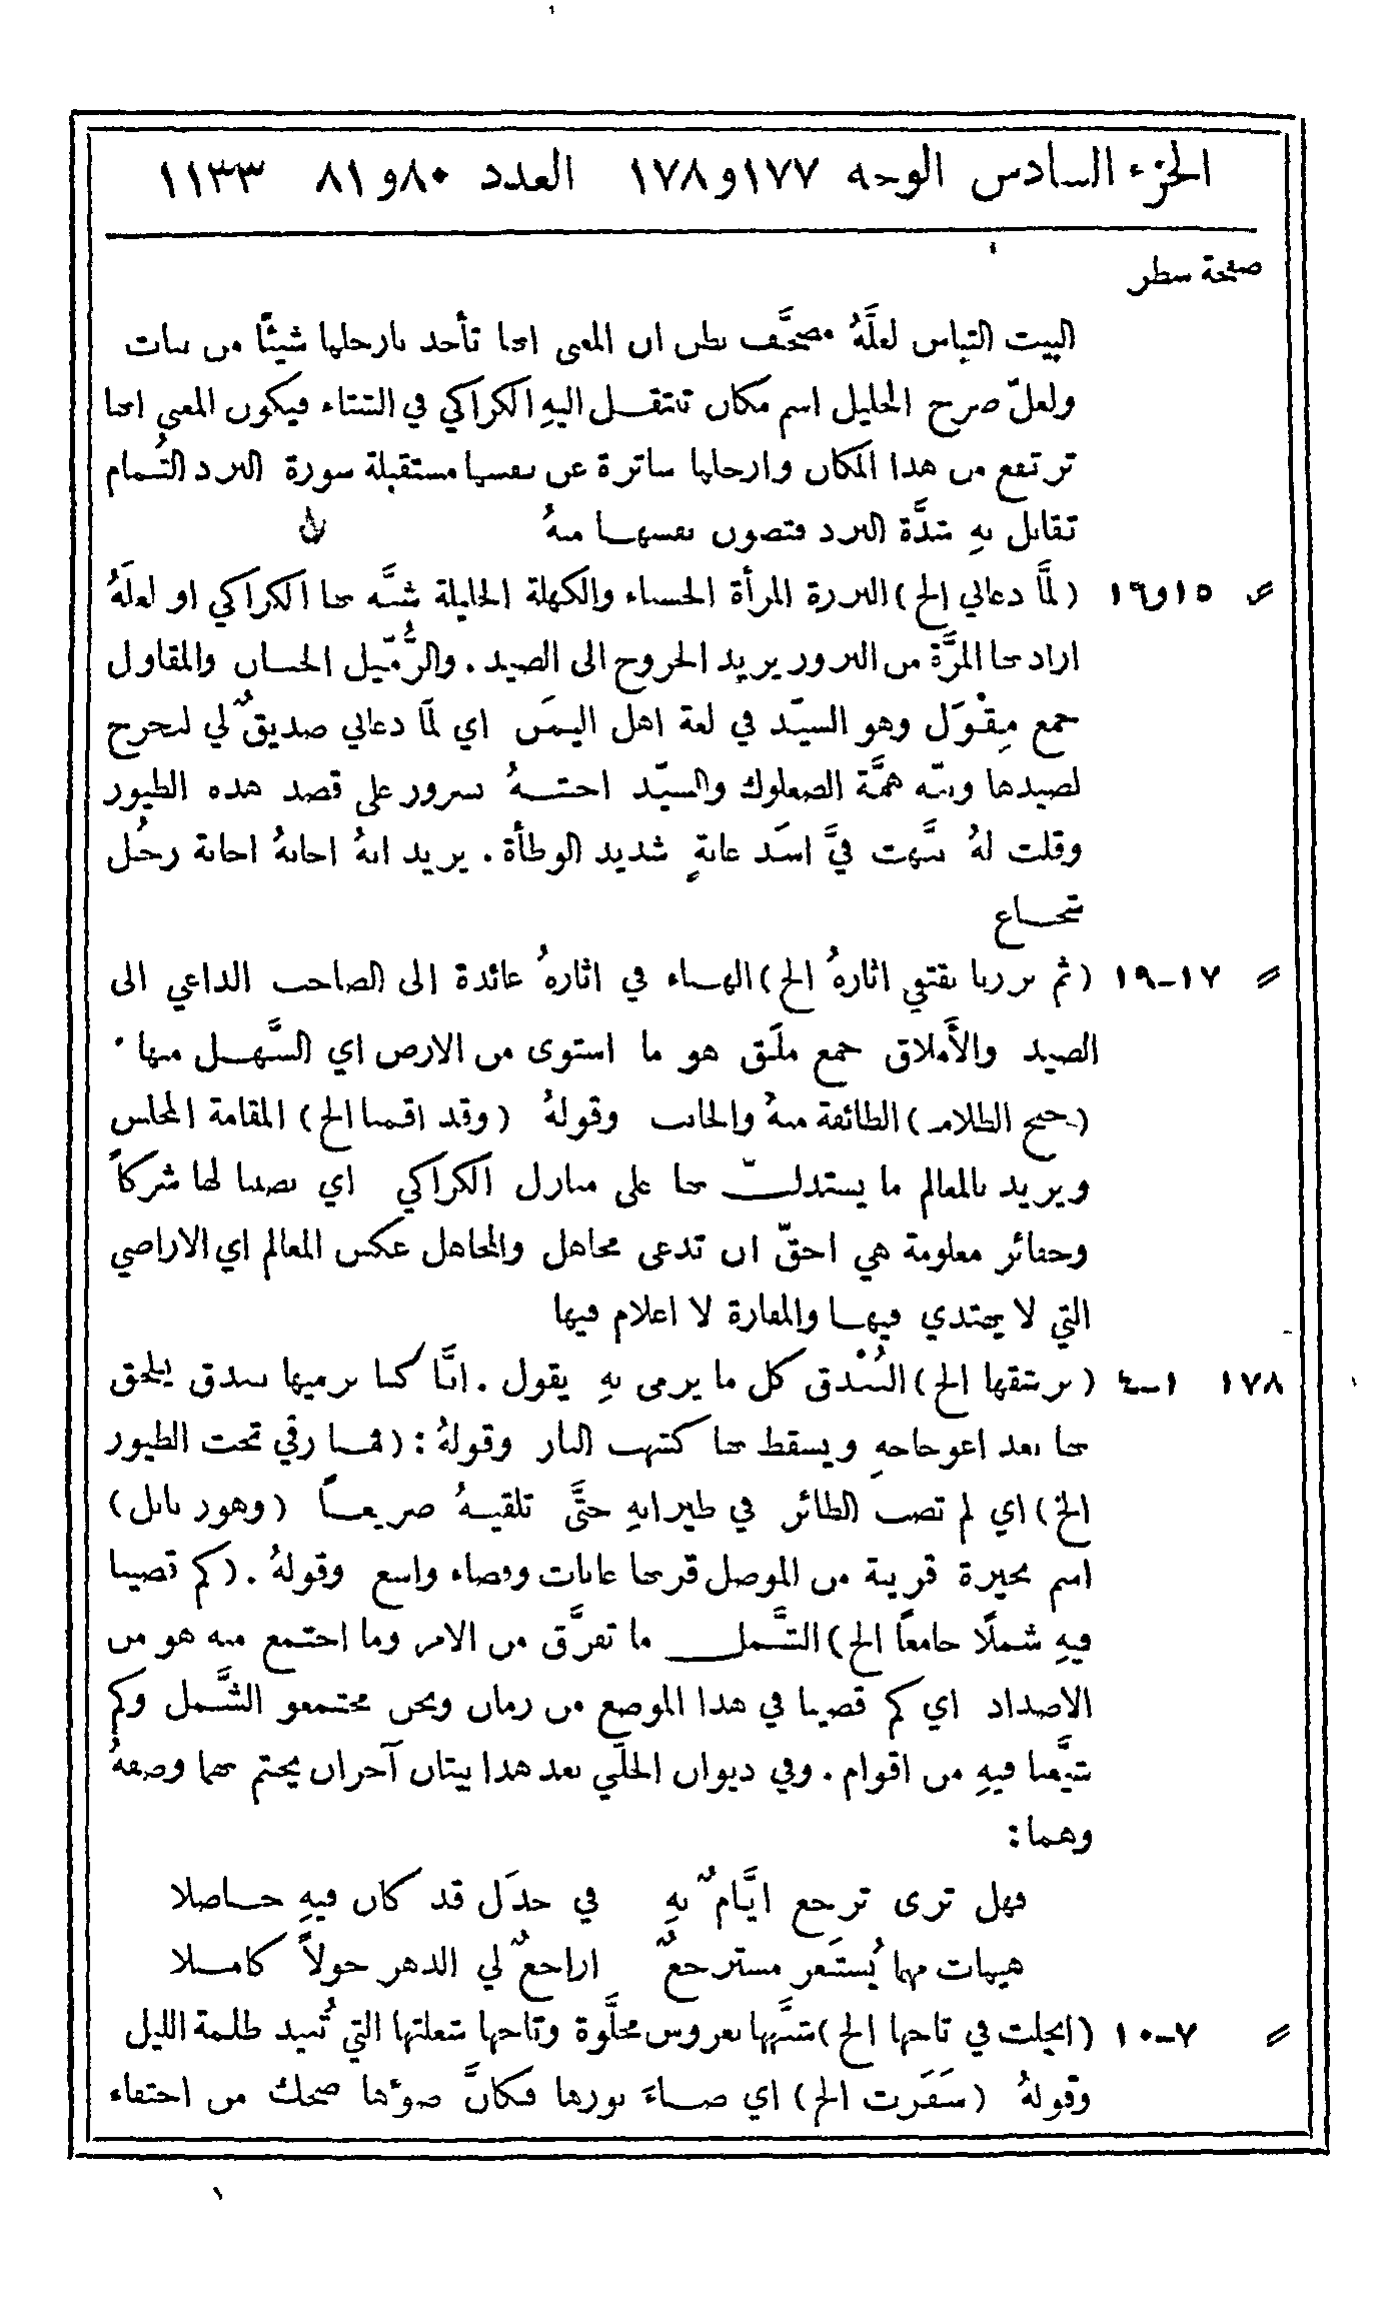 الجزء السادس الوجه ١٧٧ و١٧٨ العدد ٨٠ و٨١ ١١٣٣
صفحة سطر
البيت التباس لعلَّهُ مصحَّف نظن ان المعنى انها تأخذ بارجلها شيئًا من نبات
ولعلّ صرح الجليل اسم مكان تنتقل اليهِ الكراكي في الشتاء فيكون المعنى انها
ترتفع من هذا المكان وارجلها ساترة عن نفسها مستقبلة سورة البرد التُمام
تقابل بهِ شدَّة البرد فتصون نفسها منهُ
〃 ١٥ و١٦ (لمَّا دعاني الخ) البرزة المرأة الحسناء والكهلة الجليلة شبَّه بها الكراكي او لعلَهُ
اراد بها المرَّة من البروز يريد الخروج الى الصيد. والزُّمّيل الجبان والمقاول
جمع مِقْوَل وهو السيّد في لغة اهل اليمَن اي لمَّا دعاني صديقٌ لي لنخرج
لصيدها ونبّه همَّة الصعلوك والسيّد اجبتهُ بسرور على قصد هذه الطيور
وقلت لهُ نبَّهت فيَّ اسَد غابةٍ شديد الوطأة. يريد انهُ اجابهُ اجابة رجُل
شجاع
〃 ١٧-١٩ (ثم برزنا نقتفي اثارهُ الخ) الهاء في اثارهُ عائدة الى الصاحب الداعي الى
الصيد والأَملاق جمع ملَق هو ما استوى من الارض اي السَّهل منها.
(جنح الظلام) الطائفة منهُ والجانب وقولهُ (وقد اقمنا الخ) المقامة المجلس
ويريد بالمعالم ما يستدلّ بها على منازل الكراكي اي نصبنا لها شركاً
وحفائر معلومة هي احقّ ان تدعى مجاهل والمجاهل عكس المعالم اي الاراضي
التي لا يهتدي فيها والمفازة لا اعلام فيها
١٧٨ ١-٤ (نرشقها الخ) البُنْدق كل ما يرمى بهِ يقول. انَّا كنا نرميها ببندق يلحق
بها بعد اعوجاجهِ ويسقط بها كشهب النار وقولهُ: (فما رقي تحت الطيور
الخ) اي لم تصب الطائر في طيرانهِ حتَّى تلقيهُ صريعاً (وهور بابل)
اسم بحيرة قريبة من الموصل قربها غابات وفضاء واسع وقولهُ. (كم قضينا
فيهِ شملًا جامعاً الخ) الشَّمل ما تفرَّق من الامر وما اجتمع منه هو من
الاضداد اي كم قضينا في هذا الموضع من زمان ونحن مجتمعو الشَّمل وكم
شيَّعنا فيهِ من اقوام. وفي ديوان الحلّي بعد هذا بيتان آخران يختم بهما وصفهُ
وهما:
فهل ترى ترجع ايَّامٌ بهِ في جذَل قد كان فيهِ حاصلا
هيهات مهما يُستَعر مسترجعٌ اراجعٌ لي الدهر حولاً كاملا
〃 ٧-١٠ (انجلت في تاجها الخ) شبَّهها بعروس مجلَّوة وتاجها شعلتها التي تُبيد ظلمة الليل
وقولهُ (سَفَرت الخ) اي ضاءَ نورها فكانَّ ضوءها ضحك من احتفاء